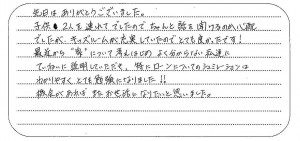 先日は ありがとうございました。
子供2人を連れてでしたので ちゃんと話を聞けるのか心配
でしたが、キッズルームが充実していたのでとても良かったです！
最近から "家" について考えはじめ よく分からない私達に
ていねいに説明していただき、特にローンについてのシュミレーションは
わかりやすく とても勉強になりました!!
機会があれば またお世話になりたいと思いました。